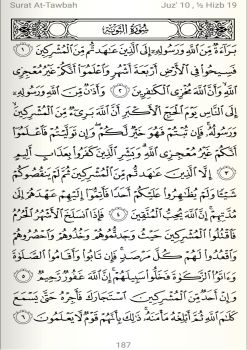 Surah At-Tawbah
Juz' 10 , ½ Hizb 19
سُورَةُ التَّوْبَةِ
بَرَاءَةٌ مِّنَ اللَّهِ وَرَسُولِهِ إِلَى الَّذِينَ عَاهَدتُّم مِّنَ الْمُشْرِكِينَ ١
فَسِيحُوا فِي الْأَرْضِ أَرْبَعَةَ أَشْهُرٍ وَاعْلَمُوا أَنَّكُمْ غَيْرُ مُعْجِزِي
اللَّهِ وَأَنَّ اللَّهَ مُخْزِي الْكَافِرِينَ ٢ وَأَذَانٌ مِّنَ اللَّهِ وَرَسُولِهِ
إِلَى النَّاسِ يَوْمَ الْحَجِّ الْأَكْبَرِ أَنَّ اللَّهَ بَرِيءٌ مِّنَ الْمُشْرِكِينَ
وَرَسُولُهُ فَإِن تُبْتُمْ فَهُوَ خَيْرٌ لَّكُمْ وَإِن تَوَلَّيْتُمْ فَاعْلَمُوا
أَنَّكُمْ غَيْرُ مُعْجِزِي اللَّهِ وَبَشِّرِ الَّذِينَ كَفَرُوا بِعَذَابٍ أَلِيمٍ
٣ إِلَّا الَّذِينَ عَاهَدتُّم مِّنَ الْمُشْرِكِينَ ثُمَّ لَمْ يَنقُصُوكُمْ
شَيْئًا وَلَمْ يُظَاهِرُوا عَلَيْكُمْ أَحَدًا فَأَتِمُّوا إِلَيْهِمْ عَهْدَهُمْ إِلَى
مُدَّتِهِمْ إِنَّ اللَّهَ يُحِبُّ الْمُتَّقِينَ ٤ فَإِذَا انسَلَخَ الْأَشْهُرُ الْحُرُمُ
فَاقْتُلُوا الْمُشْرِكِينَ حَيْثُ وَجَدتُّمُوهُمْ وَخُذُوهُمْ وَاحْصُرُوهُمْ
وَاقْعُدُوا لَهُمْ كُلَّ مَرْصَدٍ فَإِن تَابُوا وَأَقَامُوا الصَّلَاةَ
وَآتَوُا الزَّكَاةَ فَخَلُّوا سَبِيلَهُمْ إِنَّ اللَّهَ غَفُورٌ رَّحِيمٌ ٥
وَإِنْ أَحَدٌ مِّنَ الْمُشْرِكِينَ اسْتَجَارَكَ فَأَجِرْهُ حَتَّى يَسْمَعَ
كَلَامَ اللَّهِ ثُمَّ أَبْلِغْهُ مَأْمَنَهُ ذَلِكَ بِأَنَّهُمْ قَوْمٌ لَّا يَعْلَمُونَ ٦
187